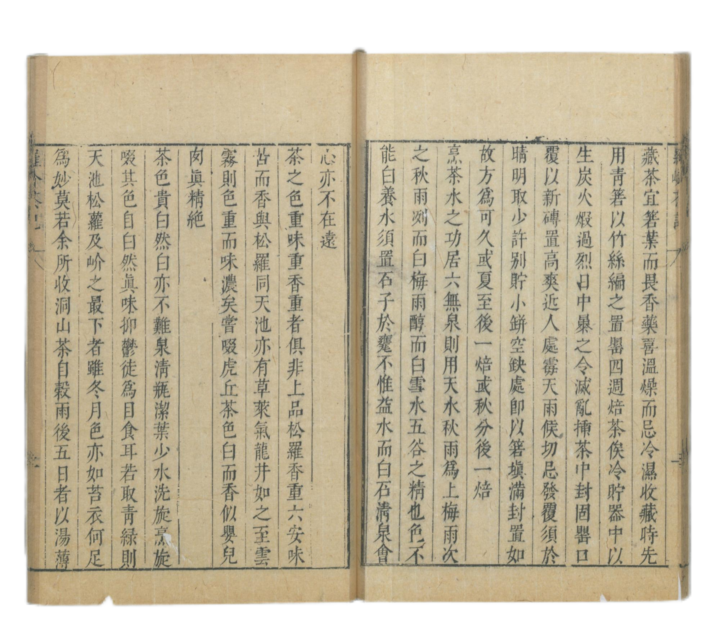 藏茶宜箬葉而畏香藥喜温燥而忌冷濕收藏時先
用青箬以竹絲編之置罌四週焙茶俟冷貯器中以
生炭火煅過烈日中暴之令滅亂揷茶中封固罌口
覆以新磚置高爽近人處霉天雨候切忌發覆須於
晴明取少許别貯小缾空缺處卽以箬塡滿封置如
故方爲可久或夏至後一焙或秋分後一焙
烹茶水之功居六無泉則用天水秋雨爲上梅雨次
之秋雨冽而白梅雨醇而白雪水五谷之精也色不
能白養水須置石子於甕不惟益水而白石清泉會
心亦不在遠
茶之色重味重香重者俱非上品松羅香重六安味
苦而香與松羅同天池亦有草萊氣龍井如之至雲
霧則色重而味濃矣嘗啜虎丘茶色白而香似嬰兒
肉眞精絶
茶色貴白然白亦不難泉清瓶潔葉少水洗旋烹旋
啜其色自白然眞味抑鬱徒爲目食耳若取青緑則
天池松蘿及岕之最下者雖冬月色亦如苔衣何足
爲妙莫若余所收洞山茶自榖雨後五日者以湯薄